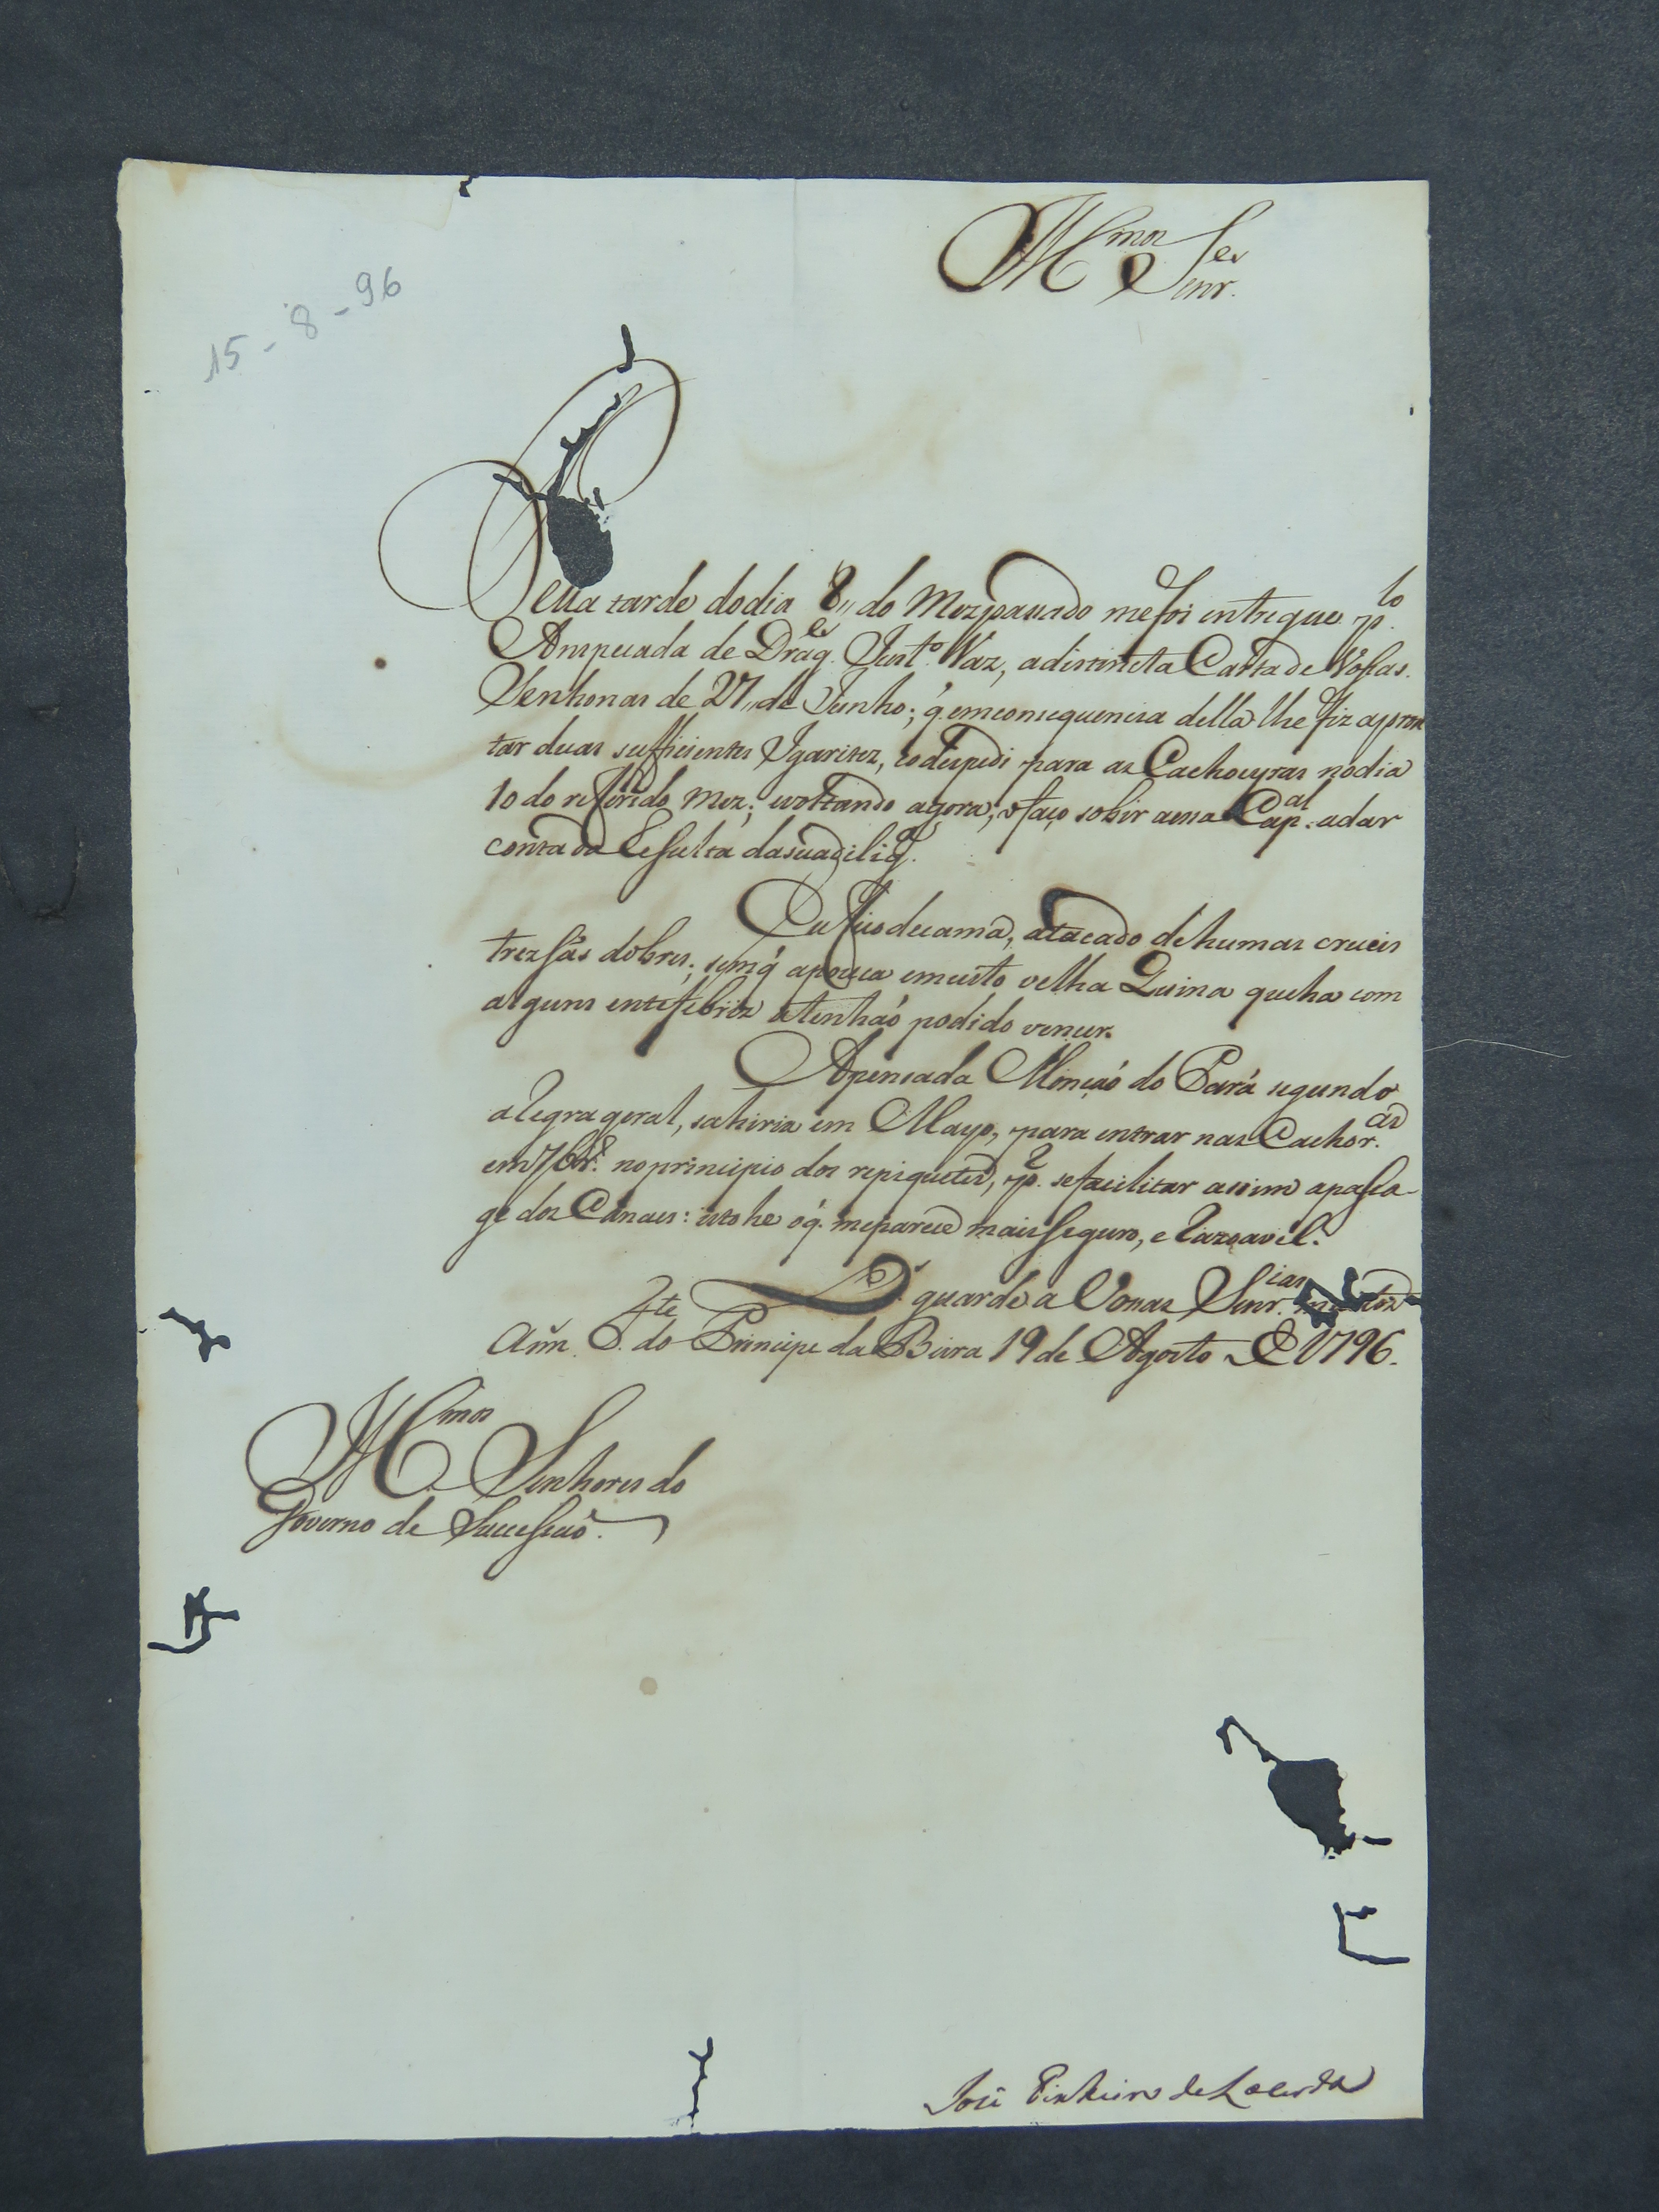 Ill.mos Senr.es
15-8-96
Pella tarde do dia 8,, do Mez passado me foi entregue p.lo
Anspesada de Drag.es Just.o Vaz, a distincta Carta de Vossas
Senhorias de 27,, de Junho; q̃ em consequencia della lhe fiz apron
tar duas sufficientes Igaritez, e o despedi para as Cachoeyras no dia
10 do referido Mez; voltando agora, o faço sobir a essa Cap.al a dar
conta da Resulta da sua dilig.ª
Eu fico de cama, atacado de humas crueis
trezsãs dobres, sem q̃ a pouca e muito velha Quina que ha com
alguns entefebriz as tenhaõ podido vencer.
A pensada Monçaõ do Pará segundo
a Regra geral, sahiria em Mayo, para entrar nas Cachor.as
em 7br.º no principio dos repiquetes, p.ª se facilitar assim a passa-
ge dos Canaes: isto he o q̃ me parece mais seguro, e Razoavel.
D.s guarde a Vossas Senr.ias muitos
ann.s F.te do Principe da Beira 19 de Agosto de 1796.
Ill.mos Senhores do
Governo de Sucessaõ.
José Pinheiro de Lacerda